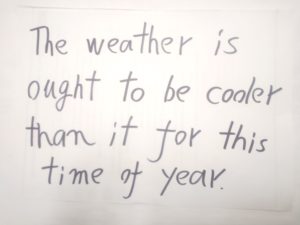 The weather is
ought to be cooler
than it for this
time of year.